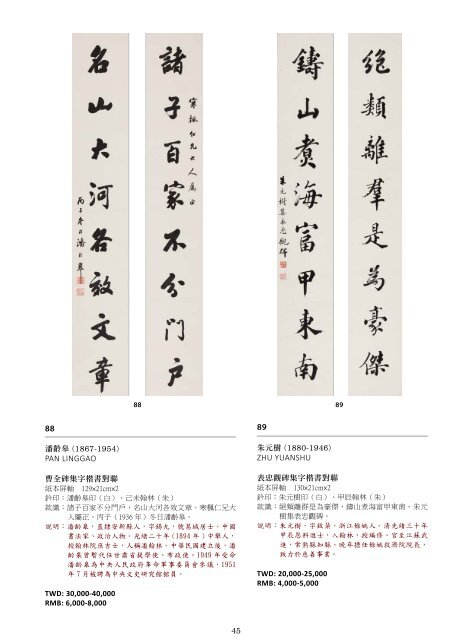 諸子百家不分門戶
寒楓仁兄大人屬正
名山大河各效文章
丙子冬日潘齡皋
絕類離羣是為豪傑
鑄山煮海富甲東南
朱元樹集表忠觀碑
88
89
88
潘齡皋 (1867-1954)
PAN LINGGAO
曹全碑集字楷書對聯
紙本屏軸 129×21cm×2
鈐印：潘齡皋印（白）、己未翰林（朱）
款識：諸子百家不分門戶，名山大河各效文章。寒楓仁兄大
人屬正，丙子（1936 年）冬日潘齡皋。
說明：潘齡皋，直隸安新縣人，字錫九，號葛城居士。中國
書法家、政治人物。光緒二十年（1894 年）中舉人，
授翰林院庶吉士，人稱潘翰林。中華民國建立後，潘
齡皋曾暫代任甘肅省提學使、布政使。1949 年受命
潘齡皋為中央人民政府革命軍事委員會參議，1951
年 7 月被聘為中央文史研究館館員。
TWD: 30,000-40,000
RMB: 6,000-8,000
89
朱元樹 (1880-1946)
ZHU YUANSHU
表忠觀碑集字楷書對聯
紙本屏軸 130×21cm×2
鈐印：朱元樹印（白）、甲辰翰林（朱）
款識：絕類離群是為豪傑，鑄山煮海富甲東南。朱元
樹集表忠觀碑。
說明：朱元樹，字敦蓁，浙江餘姚人，清光緒三十年
甲辰恩科進士，入翰林，授編修。官至江蘇武
進、常熟縣知縣。晚年擔任餘姚救濟院院長，
致力於慈善事業。
TWD: 20,000-25,000
RMB: 4,000-5,000
45